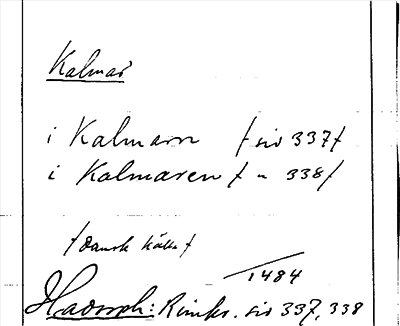 Kalmar
i Kalmarn / sid 337 /
i Kalmaren / " 338 /
/ Dansk källa /
1484
Hadorph: Rimkr. sid 337, 338